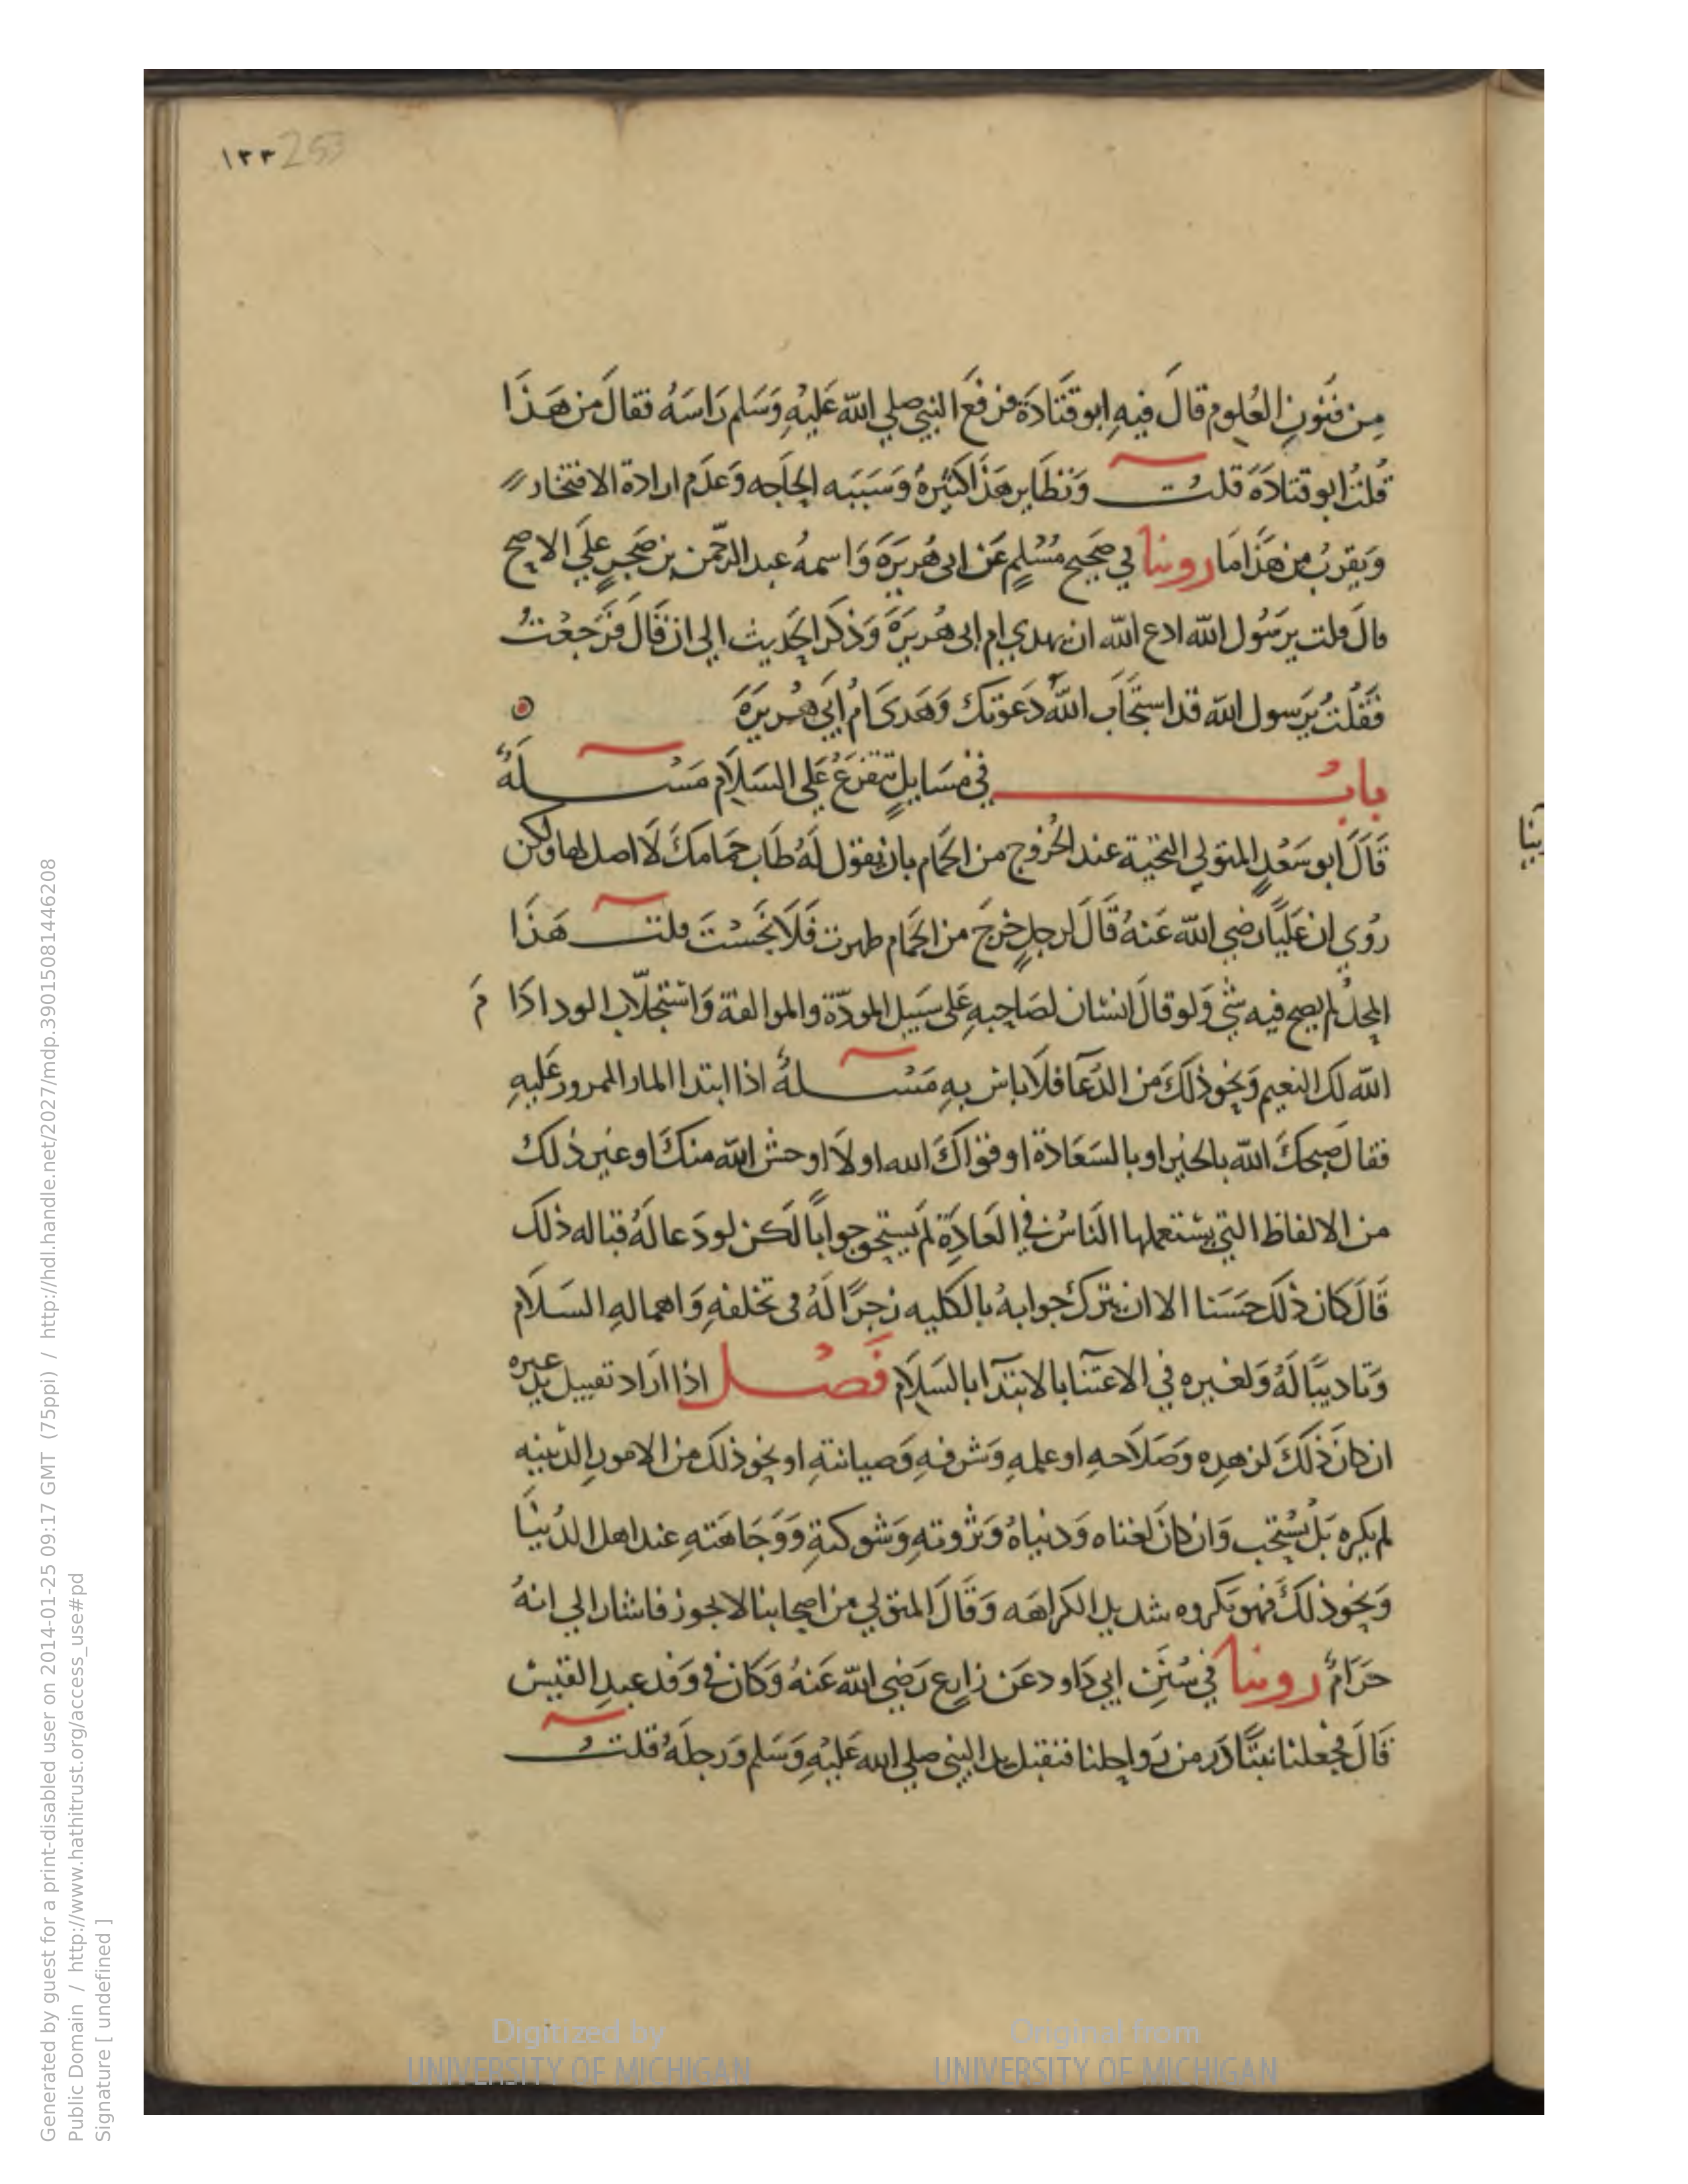 ١٣٣ 253
مِن فنُونِ العُلومِ قالَ فيهِ ابو قتَادَة فرفَع النبي صلي الله عَليْهِ وَسَلم رَاسَهُ فقالَ من هَذَا
قُلتُ ابو قتادَةَ قلت وَنظَاير هَذَا كثيْرةٌ وَسَبَبه الحاجه وَعدَم ارادة الافتخار
وَيقربُ مِن هَذَا مَا روينا في صَحيح مُسْلمٍ عَن ابى هُريرَةَ وَاسمهُ عبد الرحمن بن صَخرٍ علَي الاصح
قالَ قلت يرسُول الله ادع الله ان يهدي ام ابى هُريرَةَ وَذكَر الحَديث الي ان قالَ فرَجعْتُ
فقُلتُ يرَسول الله قد استجَابَ اللهُ دَعوَتك وَهَدَى امُ اَبي هُريرَةَ
بابُ في مسَايلٍ تتفرَعُ عَلى السَلاَم مَسْلةٌ
قَالَ ابو سَعْدٍ المتولي التحية عند الخُروج من الحَمام بان يقول لهُ طَابَ حمَامكَ لَا اصل لها ولكن
رُوى ان عَليًا رضي الله عَنهُ قَالَ لرجلٍ خرجَ من الحَمام طهرت فَلَا نجَسْتَ قلت هَذَا
المحلُ لم يصح فيه شي وَلو قالَ انسَان لصَاحبهِ عَلى سَبيل المودّة والموالفة وَاسْتجلَاب الود ادَا مَ
الله لك النعيم وَنحو ذلكَ من الدُعآ فلَا باس بهِ مَسْلةٌ اذا ابتدا المار الممرور عَليهِ
فقالَ صبحكَ الله بالخير او بالسَعَادة او قوَاكَ الله او لَا اوحش الله منكَ او غير ذلك
من الالفاظ التي يسْتعملها النَاسُ في العَادَة لم يَستحق جوابًا لَكن لو دَعا لَهُ قباله ذلك
قَالَ كان ذلكَ حسَنا الا ان يترك جوابهُ بالكليه زجرًا لَهُ في تخلفهِ وَاهمالهِ السَلَام
وَتاديبًا لَهُ وَلغيره في الاعتنآ بالابتدآ بالسَلَام فَصْل اذا اَراد تقبيل يد غيره
ان كانَ ذلكَ لزهدِه وَصَلَاحهِ او علمهِ وَشرفهِ وَصيانتهِ او نحو ذلكَ من الامورِ الدينيه
لم يكره بَلْ يُستحَب وَان كانَ لغناه وَدنياهُ وَثروتهِ وَشوكتهِ وَوَجَاهَتهِ عند اهل الدُنيَا
وَنحو ذلكَ فهو مَكروه شديد الكراهَه وَقَالَ المتولي من اصحابنا لا يجوز فاشار الي انهُ
حرَامٌ روينا في سُنَنِ ابي دَاود عَن زارعٍ رَضي الله عَنهُ وَكان في وَفد عبدِ القيْس
قَالَ فجعلنا نتبَادَر من رَواحلنا فنقبل يد النبي صلي الله عَليْهِ وَسَلم وَرجلَهُ قلت
Generated by guest for a print-disabled user on 2014-01-25 09:17 GMT (75ppi) / http://hdl.handle.net/2027/mdp.39015081446208
Public Domain / http://www.hathitrust.org/access_use#pd
Signature [ undefined ]
Digitized by
UNIVERSITY OF MICHIGAN
Original from
UNIVERSITY OF MICHIGAN